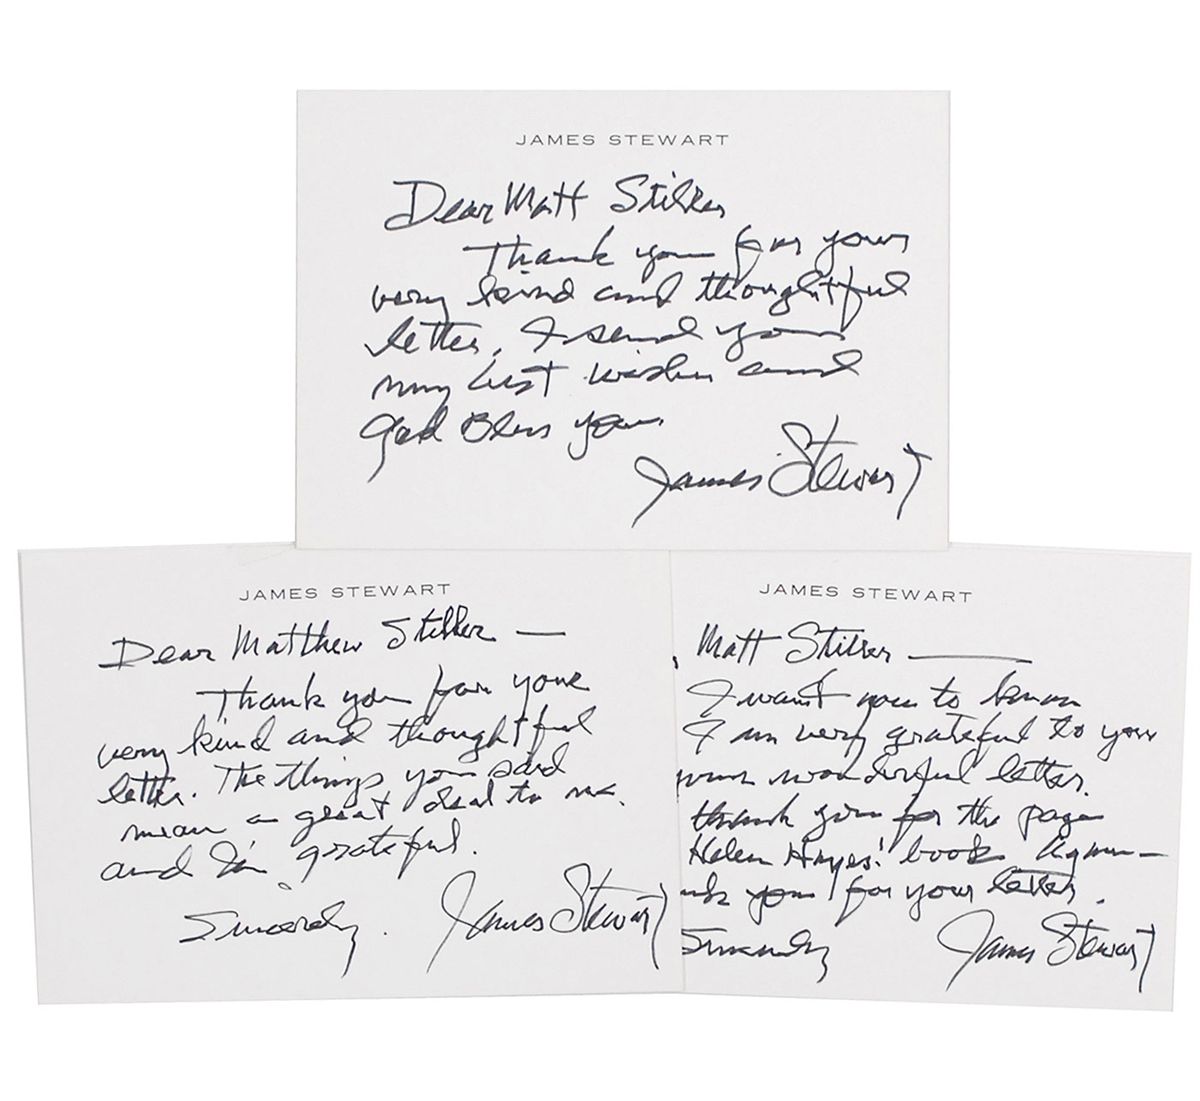 JAMES STEWART
Dear Matt Stilker
Thank you for your
very kind and thoughtful
letter. I send you
my best wishes and
God Bless you.
James Stewart
JAMES STEWART
Dear Matthew Stilker —
Thank you for your
very kind and thoughtful
letter. The things you said
mean a great deal to me.
and I'm grateful.
Sincerely.
James Stewart
JAMES STEWART
Matt Stilker —
I want you to know
I am very grateful to you
wonderful letter.
thank you for the page
Helen Hayes' book Again —
you for your letter.
Sincerely
James Stewart